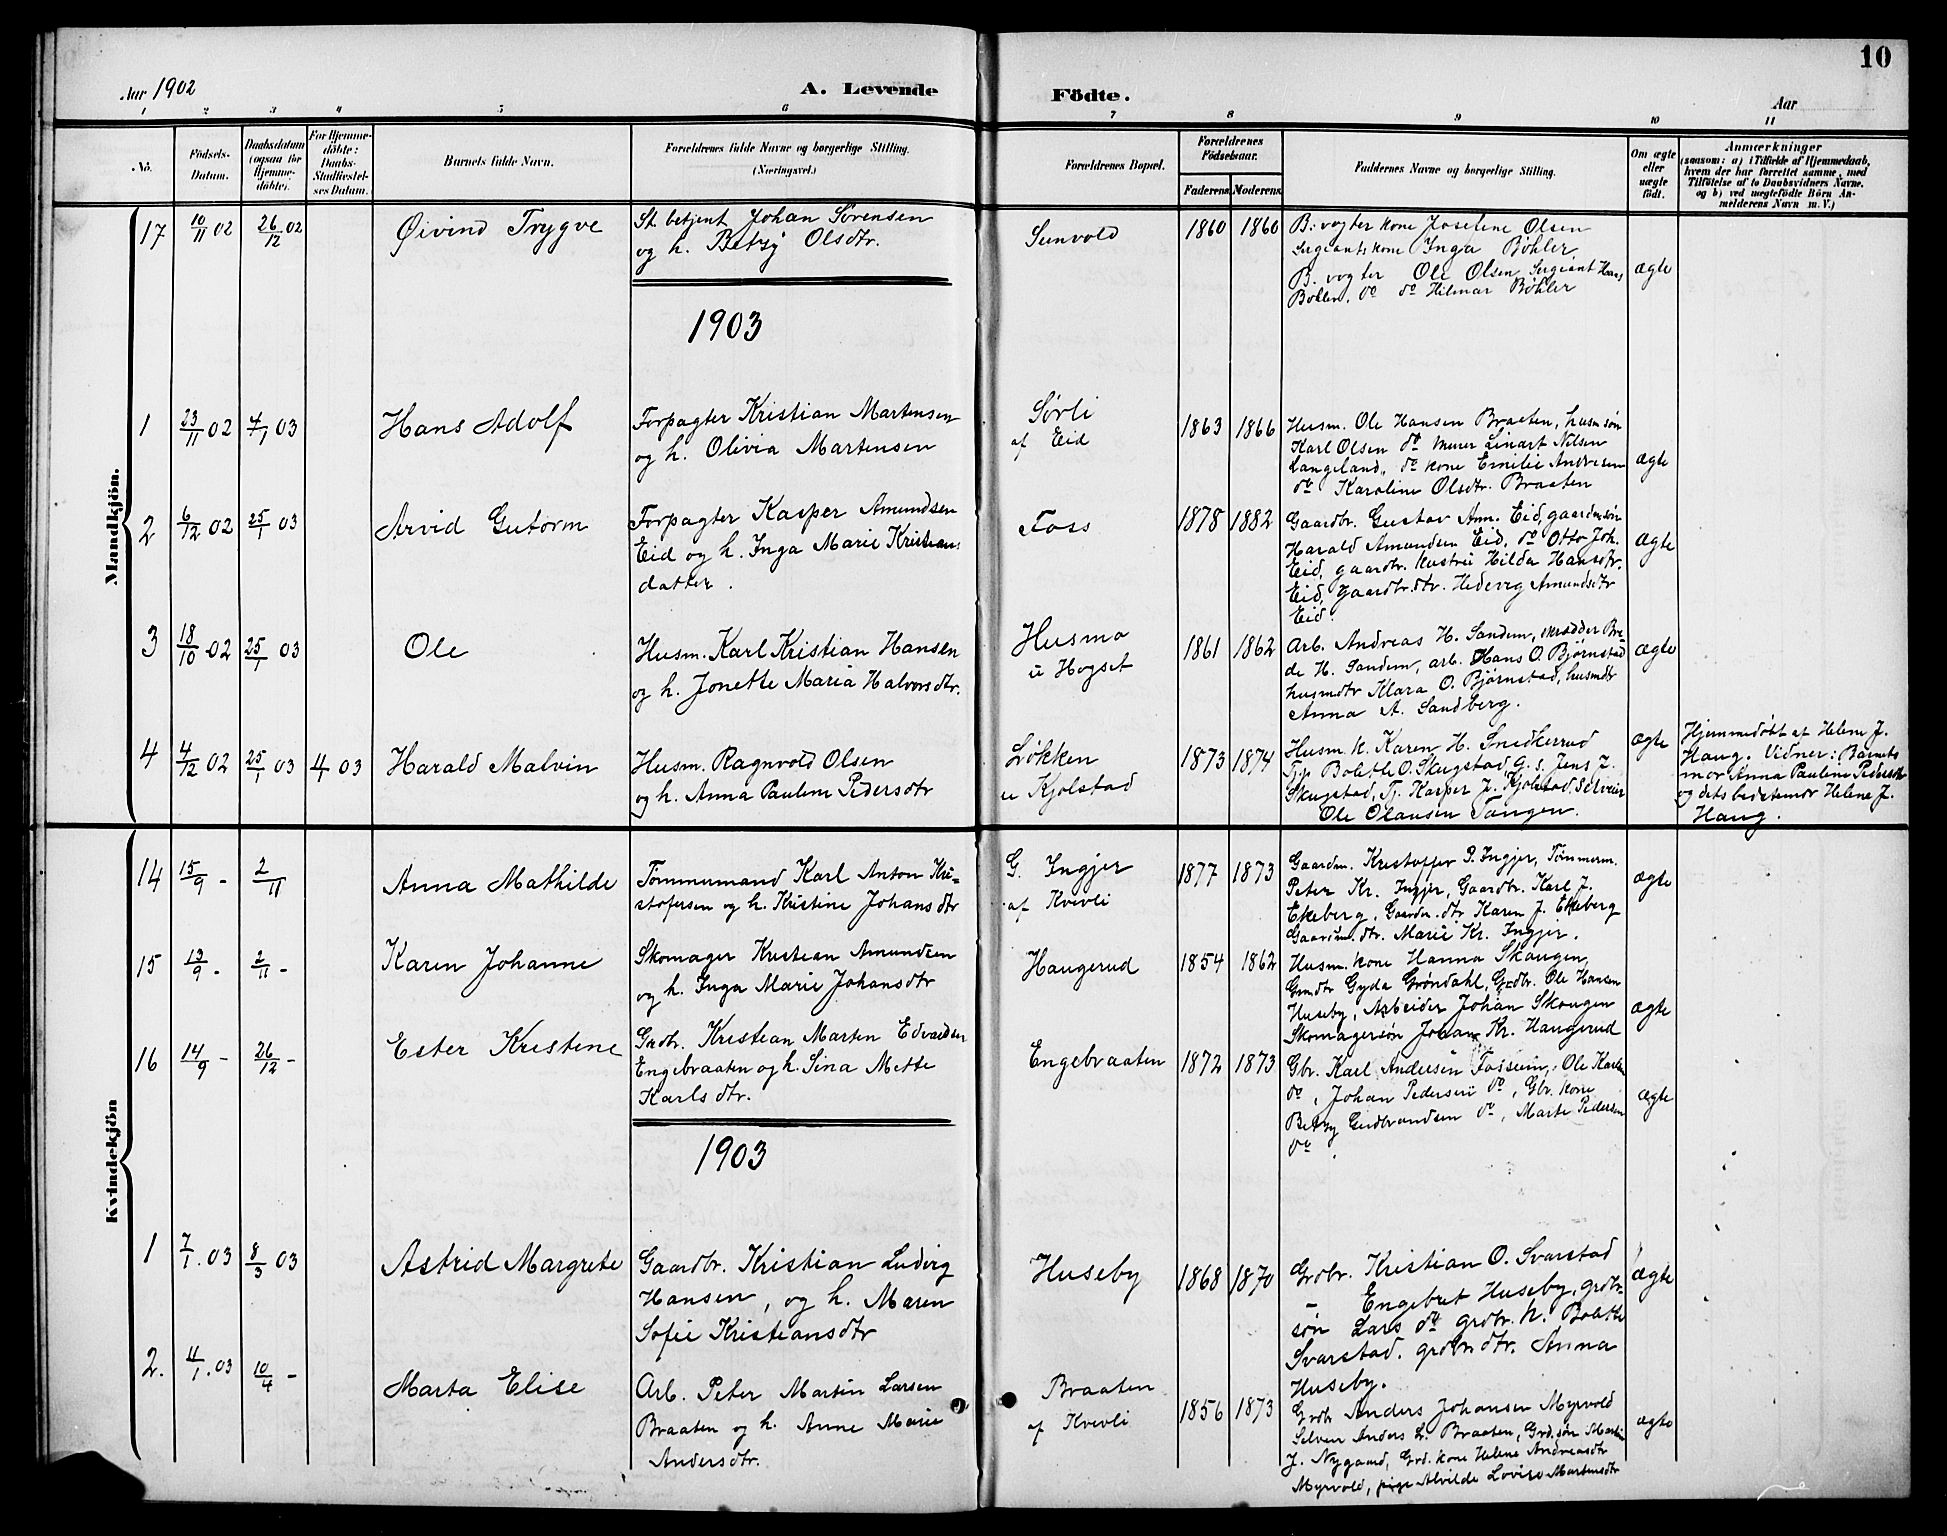 10
Aar 1902
A. Levende
Födte.
Aar
1 2 3 4 5 6 7 8 9 10 11
No.
Födsels-Datum.
Daabsdatum (ogsaa for Hjemmedöbte).
For Hjemmedöbte: Daabs-Stadfæstelses Datum.
Barnets fulde Navn.
Forældrenes fulde Navne og borgerlige Stilling. (Næringsvei.)
Forældrenes Bopæl.
Forældrenes Födselsaar.
Faderens. Moderens.
Faddernes Navne og borgerlige Stilling.
Om ægte eller uægte födt.
Anmærkninger
(saasom: a) i Tilfælde af Hjemmedaab,
hvem der har forrettet samme, med
Tilföielse af to Daabsvidners Navne,
og b) ved uægtefödte Börn An-
melderens Navn m. V.)
Mandkjön.
17 10/11 02 26/12 02 Øivind Trygve
St. betjent Johan Sørensen
og h. Betzy Olsdtr.
Sunvold
1860 1860
B. vogter kone Joseline Olsen
Sergiants kone Inga Bøhler
B. vogter Ole Olsen, Sergiant Hans
Bøhler, do do Hilmar Bøhler
ægte
1903
1 23/11 02 7/1 03 Hans Adolf
Forpagter Kristian Martensen
og h. Olivia Martensen
Sørli
af Eid
1863 1866
Husm. Ole Hansen Braaten, husm søn
Karl Olsen do murer Linart Nilsen
Langeland, do kone Emilie Andresen
do Karoline Olsdtr. Braaten
ægte
2 6/12 02 25/1 03 Arvid Gutorm
Forpagter Kasper Amundsen
Eid og h. Inga Marie Kristians
datter.
Foss
1878 1882
Gaardbr. Gustav Am. Eid, gaardm.søn
Harald Amundsen Eid, do Otto Joh.
Eid, gaardbr. hustru Hilda Hansdtr.
Eid, gaardbr.dtr. Hedevig Amundsdtr
Eid.
ægte
3 18/10 02 25/1 03 Ole
Husm. Karl Kristian Hansen
og h. Jonette Maria Halvorsdtr.
Husmo
u Hogset
1861 1862
Arb. Andreas H. Sandem, skrædder Bre-
de H. Sandem, arb. Hans O. Bjørnstad
husmdtr Klara O. Bjørnstad, husmdtr
Anna A. Sandberg.
ægte
4 4/12 02 25/1 03 4/1 03 Harald Malvin
Husm. Ragnvold Olsen
og h. Anna Pauline Pedersdtr
Løkken
u Kjolstad
1873 1874
Husm. k. Karen H. Snedkerrud
Tj. Bolette O. Skugstad G. s. Jens J.
Skugstad, Tj. Kasper J. Kjolstad, Selveier
Ole Olausen Tangen.
ægte
Hjemmedøbt af Helene J.
Haug. Vidner: Barnets
mor Anna Pauline Pedersdtr
og dets bedstemor Helene J.
Haug.
Kvindekjön
14 15/9 - 2/11 Anna Mathilde
Tømmermand Karl Anton Kri-
stofersen og h. Kristine Johansdtr
G. Ingjer
af Kvevli
1877 1873
Gaardm. Kristoffer P. Ingjer, Tømmerm.
Peter Kr. Ingjer, Gaardbr. Karl J.
Ekeberg, Gaardbr. dtr Karen J. Ekeberg
Gaardm. dtr. Marie Kr. Ingjer.
ægte
15 13/9 - 2/11 - Karen Johanne
Skomager Kristian Amundsen
og h. Inga Marie Johansdtr
Haugerud
1854 1862
Husm. kone Hanna Skougen,
Grmdtr Gyda Grøndahl, Grdbr. Ole Hansen
Huseby, Arbeider Johan Skougen
Skomagersøn Johan Kr. Haugerud
ægte
16 14/9 - 26/12 - Ester Kristine
Grdbr. Kristian Marten Edvardsen
Engebraaten og h. Sina Mette
Karlsdtr.
Engebraaten
1872 1873
Gbr. Karl Andersen Fossum, Ole Karlsen
do, Johan Pedersen do, Gbr. kone
Betzy Gudbrandsen do, Marte Pedersen
do
ægte
1903
1 7/1. 03 8/3 03 Astrid Margrete
Gaardbr. Kristian Ludvig
Hansen, og h. Maren
Sofie Kristiansdtr
Huseby
1868 1870
Grdbr. Kristian O. Svarstad
– Engebret Huseby, grdbr-
søn Lars do grdbr. k. Bolette
Svarstad. grdbr.dtr. Anna
Huseby.
ægte
2. 4/1. 03 10/4 - Marta Elise
Arb. Peter Martin Larsen
Braaten og h. Anne Marie
Andersdtr.
Braaten
af Kvevli
1856 1873
Grdbr Anders Johansen Myrvold
Selveier Anders L. Braaten, Grd.søn Martin
J. Nygaard, Grd. kone Helene Andreasdtr
Myrvold, pige Alvilde Lovise Martinsdtr
ægte